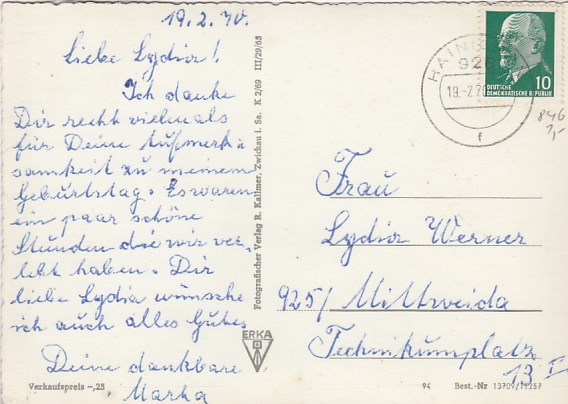 19.2.70.
Liebe Lydia!
Ich danke
Dir recht vielmals
für Deine Aufmerk=
samkeit zu meinem
Geburtstag. Es waren
ein paar schöne
Stunden die wir ver-
lebt haben. Dir
liebe Lydia wünsche
ich auch alles Gutes
Deine dankbare
Marka
Verkaufspreis -,25
Fotografischer Verlag R. Kallmer, Zwickau i. Sa. K 2/69 III/29/65
ERKA
HAINI
92
19.-2.7
f
DEUTSCHE
DEMOKRATISCHE REPUBLIK
10
846
1,-
Frau
Lydia Werner
925/ Mittweida
Technikumplatz
13 I
94 Best.-Nr 13709/11257